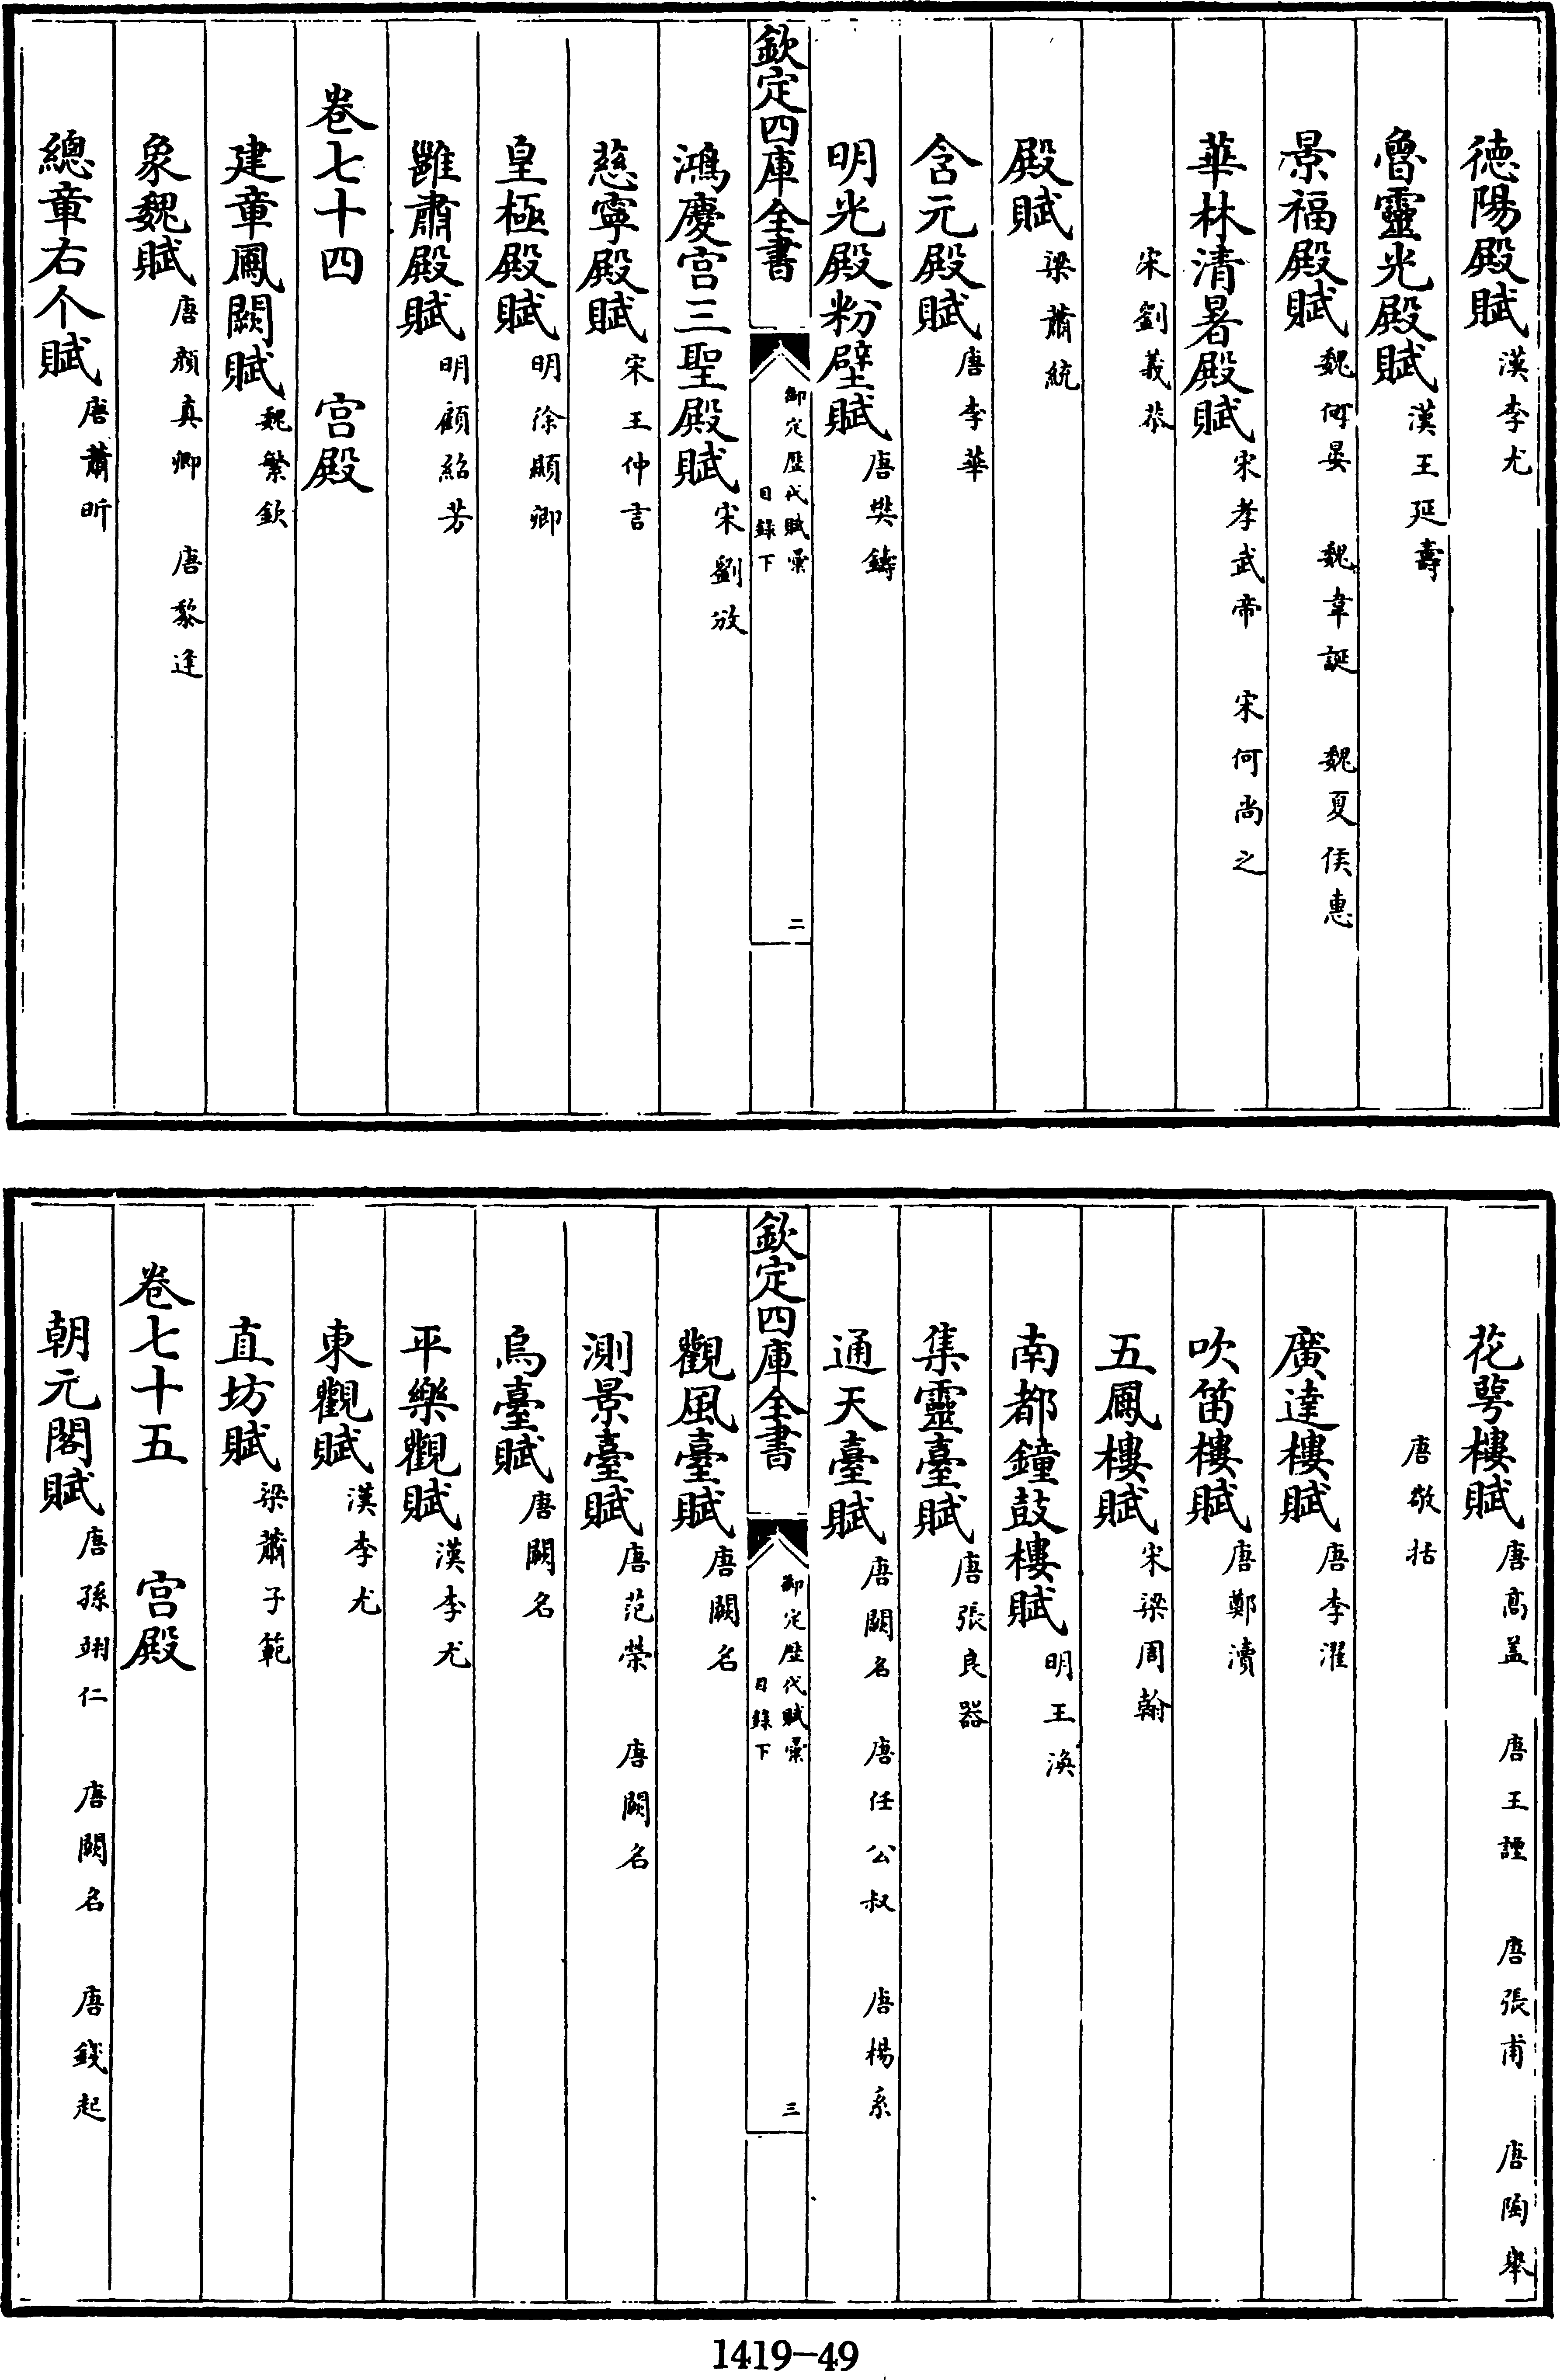 德陽殿賦漢李尤
魯靈光殿賦漢王延壽
景福殿賦魏何晏 魏韋誕 魏夏侯惠
華林清暑殿賦宋孝武帝 宋何尚之
宋劉義恭
殿賦梁蕭統
含元殿賦唐李華
明光殿粉壁賦唐樊鑄
欽定四庫全書
御定歷代賦彙
目錄下
二
鴻慶宮三聖殿賦宋劉攽
慈寧殿賦宋王仲言
皇極殿賦明徐顯卿
雝肅殿賦明顧紹芳
卷七十四 宮殿
建章鳳闕賦魏繁欽
象魏賦唐顏真卿 唐黎逢
總章右个賦唐蕭昕
花萼樓賦唐高蓋 唐王諲 唐張甫 唐陶舉
唐敬括
廣達樓賦唐李濯
吹笛樓賦唐鄭瀆
五鳳樓賦宋梁周翰
南都鐘鼓樓賦明王渙
集靈臺賦唐張良器
通天臺賦唐闕名 唐任公叔 唐楊系
欽定四庫全書
御定歷代賦彙
目錄下
三
觀風臺賦唐闕名
測景臺賦唐范榮 唐闕名
烏臺賦唐闕名
平樂觀賦漢李尤
東觀賦漢李尤
直坊賦梁蕭子範
卷七十五 宮殿
朝元閣賦唐孫翊仁 唐闕名 唐錢起
1419-49